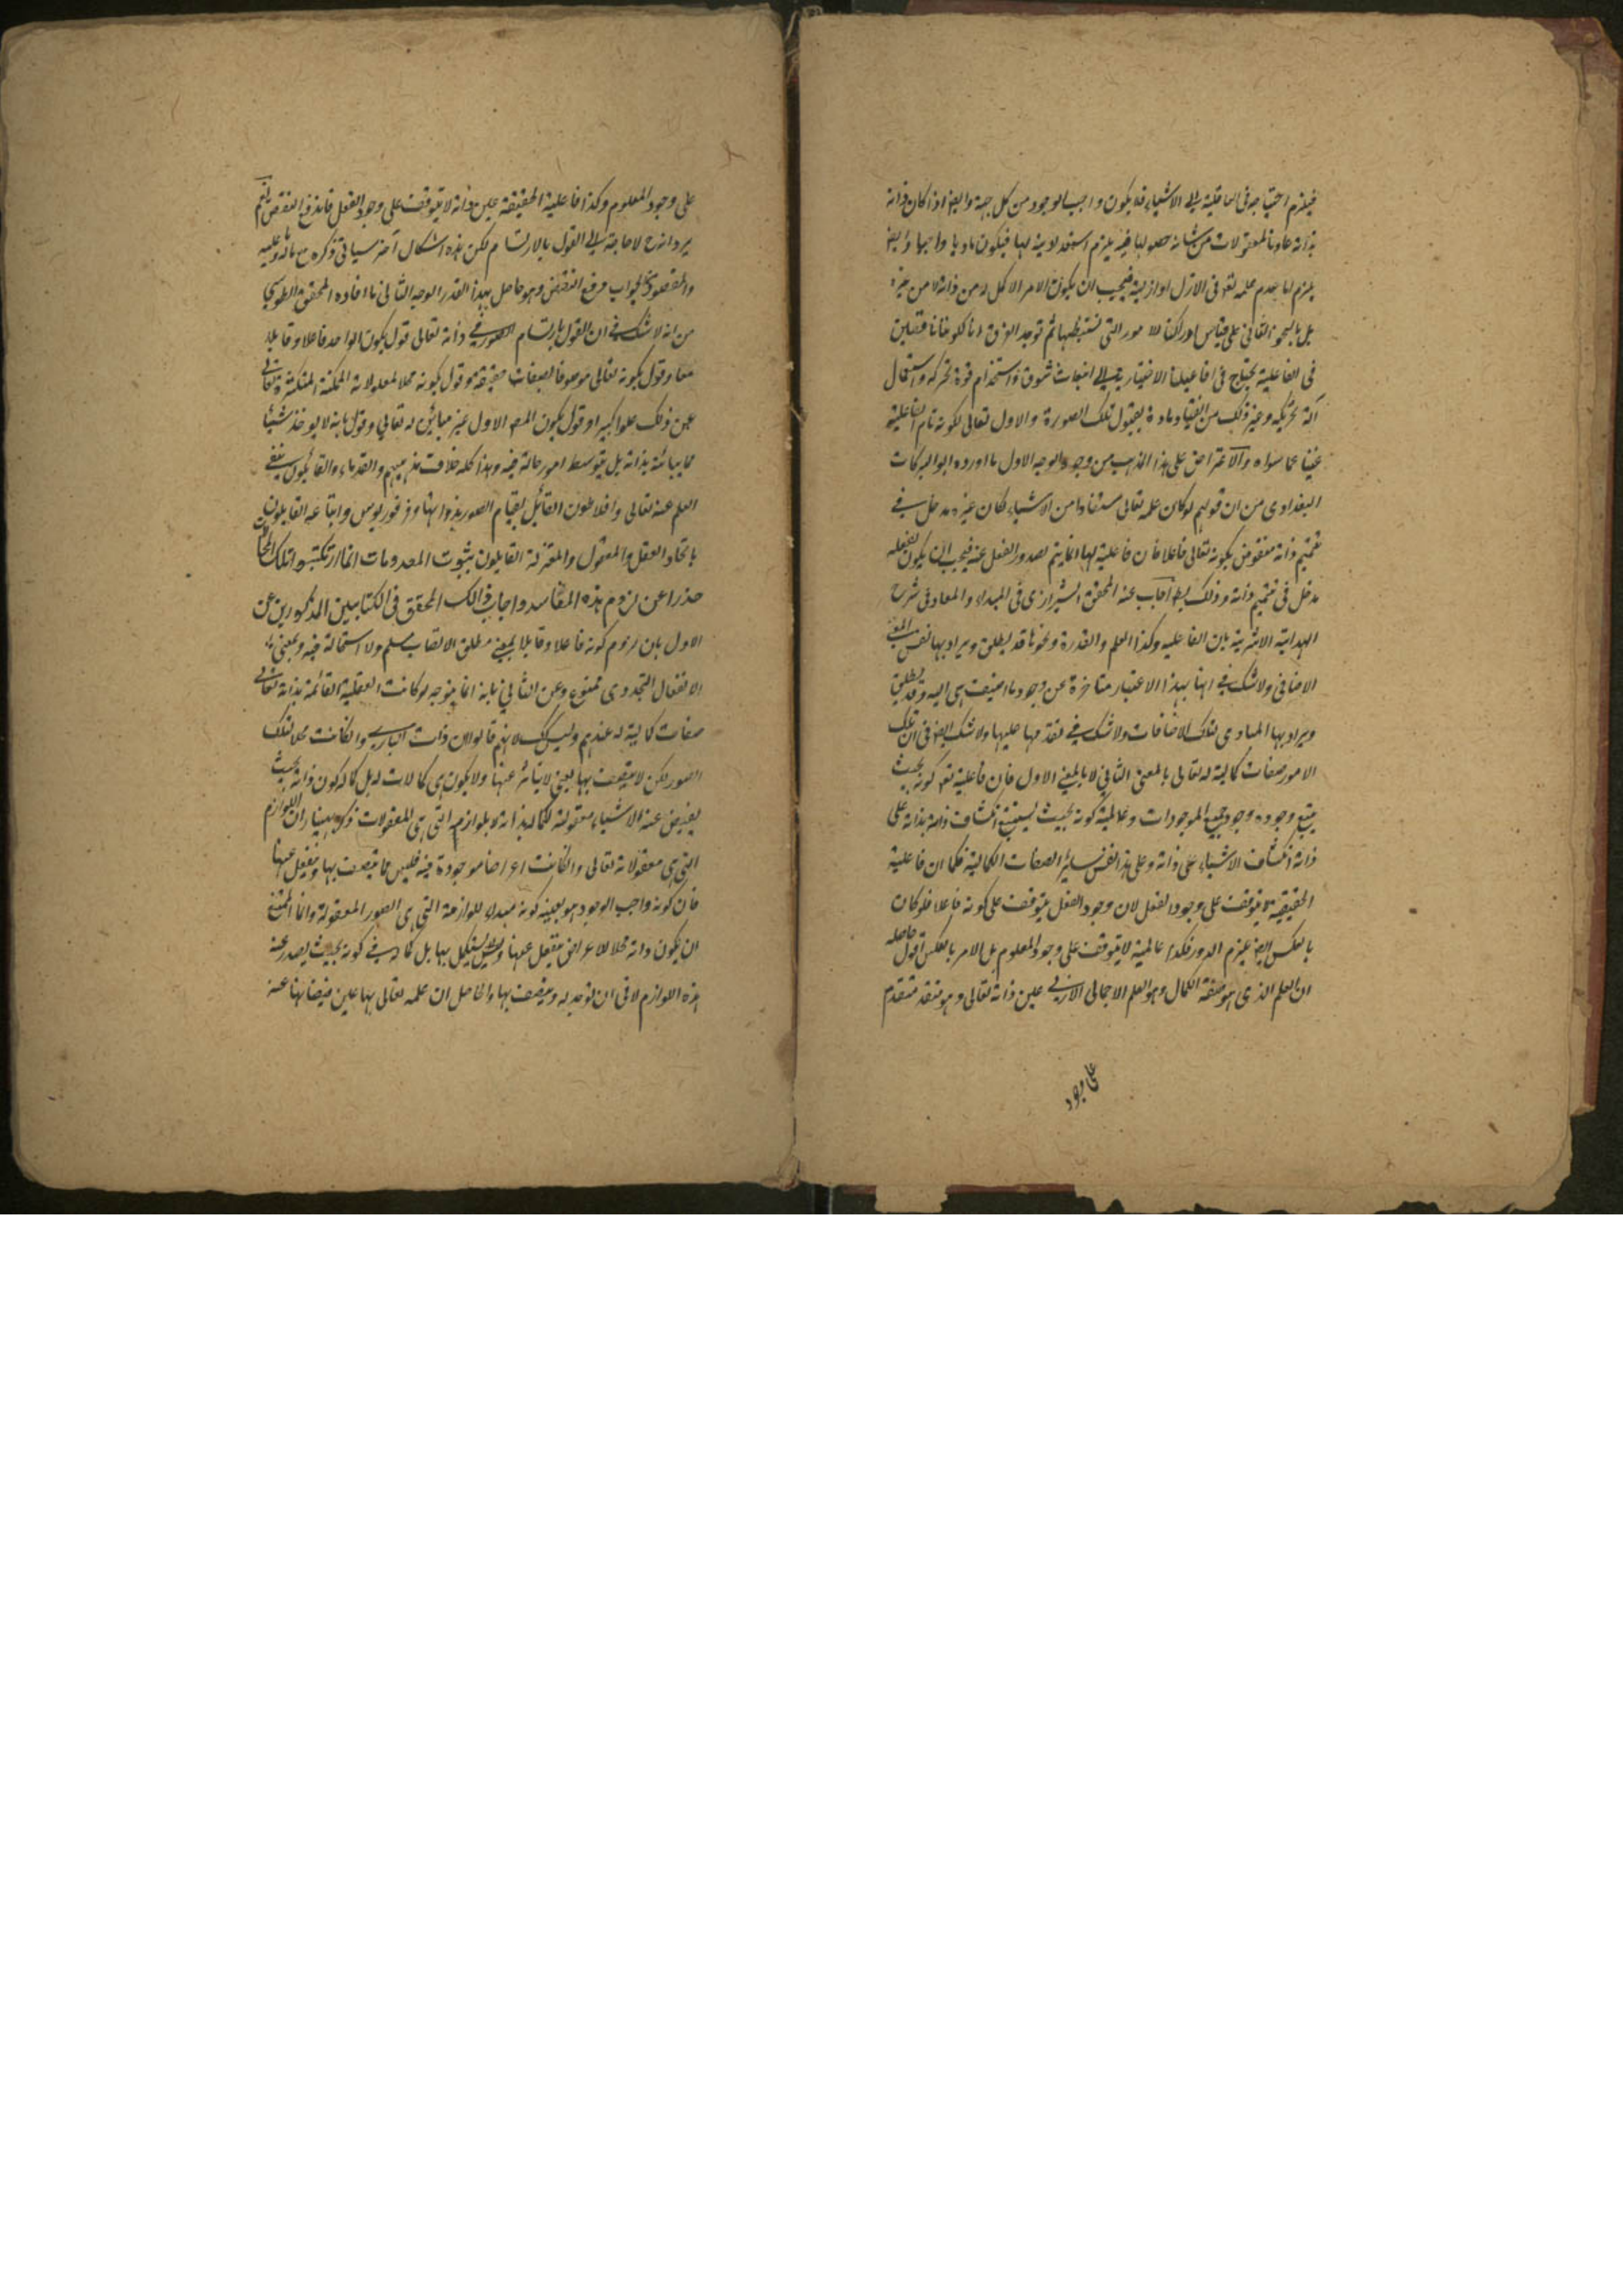 فيلزم احتياجه فى عاقلية الى الاشياء فلا يكون واجب الوجود من كل جهة وايضا اذا كان ذاته
بذاته عادما للمعقولات من شانه حصولها فيه يلزم استعداديته لها فيكون ماديا واجبا وايضا
يلزم اما عدم علمه تعه فى الازل او ازليته فيجب ان يكون الامر الاكمل له من ذاته لا من غيره
بل بالنحو الثانى على قياس ادراكنا للامور التى نستنبطها ثم توجد الفرق انا لكوننا ناقصين
فى الفاعلية نحتاج فى افاعيلنا الاختيارية الى انبعاث شوق واستخدام قوة محركة واستعمال
آلة تحريكية وغير ذلك من انقياد مادة بقبول تلك الصورة والاول تعالى لكونه تام الفاعلية
غنيا عما سواه والاعتراض على هذا المذهب من وجوه الوجه الاول ما اورده ابو البركات
البغدادى من ان قولهم لو كان علمه تعالى مستفادا من الاشياء لكان غيره مدخل فى
تتميم ذاته منقوض بكونه تعالى فاعلا فان فاعليته لها انما يتم بصدور الفعل عنه فيجب ان يكون لفعله
مدخل فى تتميم ذاته وذلك بط اجاب عنه المحقق الشيرازى فى المبداء والمعاد وفى شرح
الهداية الاثيرية بان الفاعلية وكذا العلم والقدرة ونحوها قد يطلق ويراد بها نفس المعنى
الاضافى ولا شك فى انها بهذا الاعتبار متاخرة عن وجود ما اضيفت هى اليه وقد يطلق
ويراد بها المبادى لتلك الاضافات ولا شك فى تقدمها عليها ولا شك ايضا فى ان تلك
الامور صفات كمالية له تعالى بالمعنى الثانى لا بالمعنى الاول فان فاعليته تعه كونه بحيث
يتبع وجوده وجود جميع الموجودات وعالميته كونه بحيث يستتبع انكشاف ذاته بذاته على
ذاته انكشاف الاشياء على ذاته وعلى هذا نفس سائر الصفات الكمالية فكما ان فاعلية
الحقيقية لا يتوقف على وجود الفعل لان وجود الفعل يتوقف على كونه فاعلا فلو كان
بالعكس ايضا يلزم الدور فكذا عالميته لا يتوقف على وجود المعلوم بل الامر بالعكس اقول حاصله
ان العلم الذى هو صفة الكمال وهو العلم الاجمالى الازلى عين ذاته تعالى وهو متقدم
على وجود
على وجود المعلوم وكذا فاعلية الحقيقة عين ذاته لا يتوقف على وجود الفعل فاندفع النقض نعم
يرد انه ح لا حاجة الى القول بالارتسام لكن هذه اشكال آخر سياتى ذكره مع ماله وعليه
والمقصود فى الجواب دفع النقض وهو حاصل بهذا القدر الوجه الثانى ما افاده المحقق الطوسى
من انه لا شك فى ان القول بارتسام الصور فى ذاته تعالى قول بكون الواحد فاعلا وقابلا
معا وقول بكونه تعالى موصوفا بصفات حقيقة وقول بكونه محلا لمعلولاته الممكنة المتكثرة تعالى
عن ذلك علوا كبيرا وقول بكون المعه الاول غير مبائن له تعالى وقول بانه لا يوجد شيئا
مما يباينه بذاته بل بتوسط امور حالة فيه وهذا كله خلاف مذهبهم والقدماء والقائلون بنفى
العلم عنه تعالى وافلاطون القائل بقيام الصور بذواتها وفرفوريوس واتباعه القايلون
باتحاد العقل والمعقول والمعتزلة القايلون بثبوت المعدومات انما ارتكبوا تلك المحالات
حذرا عن لزوم هذه المفاسد واجاب ذالك المحقق فى الكتابين المذكورين عن
الاول بان لزوم كونه فاعلا وقابلا بمعنى مطلق الاتصاف مسلم ولا استحالة فيه وبمعنى
الانفعال التجددى ممنوع وعن الثانى بانه انما يتوجه لو كانت العقلية القائمة بذاته تعالى
صفات كمالية له عندهم وليس كك لانهم قالوا ان ذات البارى وان كانت محلا لتلك
الصور لكن لا يتصف بها يعنى لا يتاثر عنها ولا يكون هى كمالات له بل كماله كون ذاته بحيث
يفيض عنه الاشياء معقولة فكماله بذاته لا بلوازمه التى هى المعقولات ذكر بهمنيار ان اللوازم
التى هى معقولاته تعالى وان كانت اعراضا موجودة فيه فليس مما يتصف بها وينفعل عنها
فان كونه واجب الوجود هو بعينه كونه مبداء للوازمة التى هى الصور المعقولة وانما الممتنع
ان يكون ذاته محلا للاعراض ينفعل عنها ويستكمل بها بل كماله فى كونه بحيث يصدر عنه
هذه اللوازم لا فى ان توجد له ويتصف بها والحاصل ان علمه تعالى بها عين فيضانها عنه